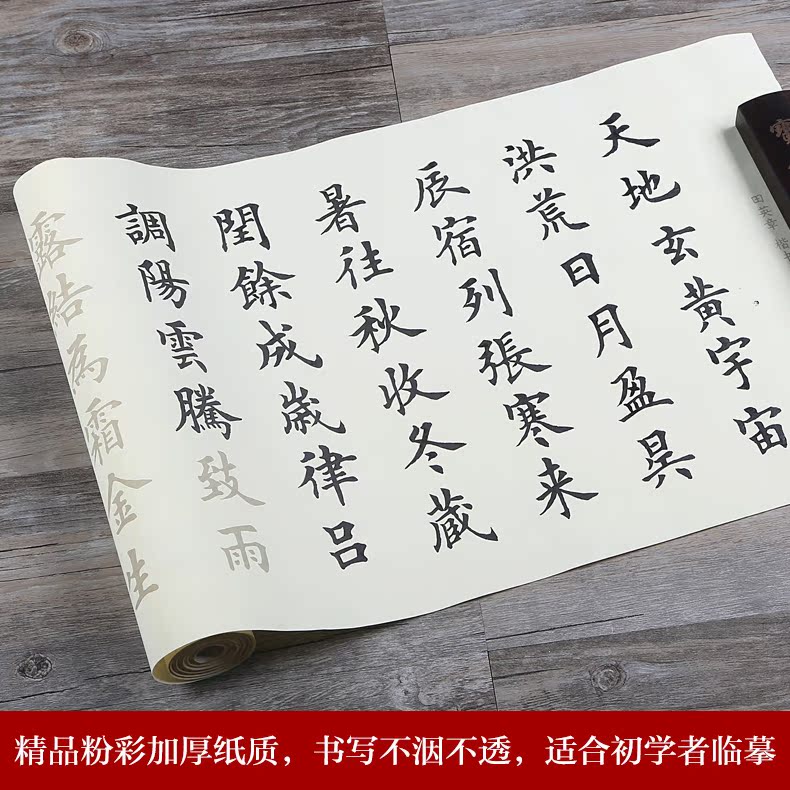 天地玄黄宇宙
洪荒日月盈昃
辰宿列張寒来
暑往秋收冬藏
閏餘成歲律吕
調陽雲騰致雨
露结為霜金生
田英章 楷
精品粉彩加厚纸质，书写不洇不透，适合初学者临摹